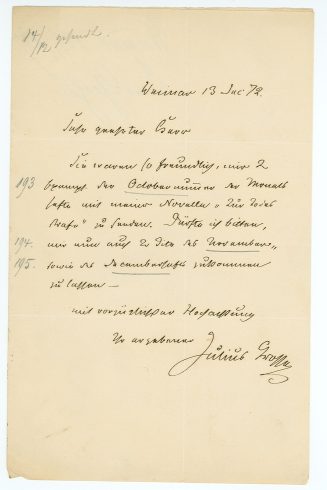 14/12 gesandt.
Weimar 13 Dec 72.
Sehr geehrter Herr
Sie waren so freundlich, mir 2
Exempl. der Octobernummer der Monats
hefte mit meiner Novelle "
" zu senden. Dürfte ich bitten,
193
mir nun auch 2 dito des November,,
194.
sowie des Decemberhefts zukommen
195.
zu lassen —
mit vorzüglicher Hochachtung
Ihr ergebener
Julius Grosse